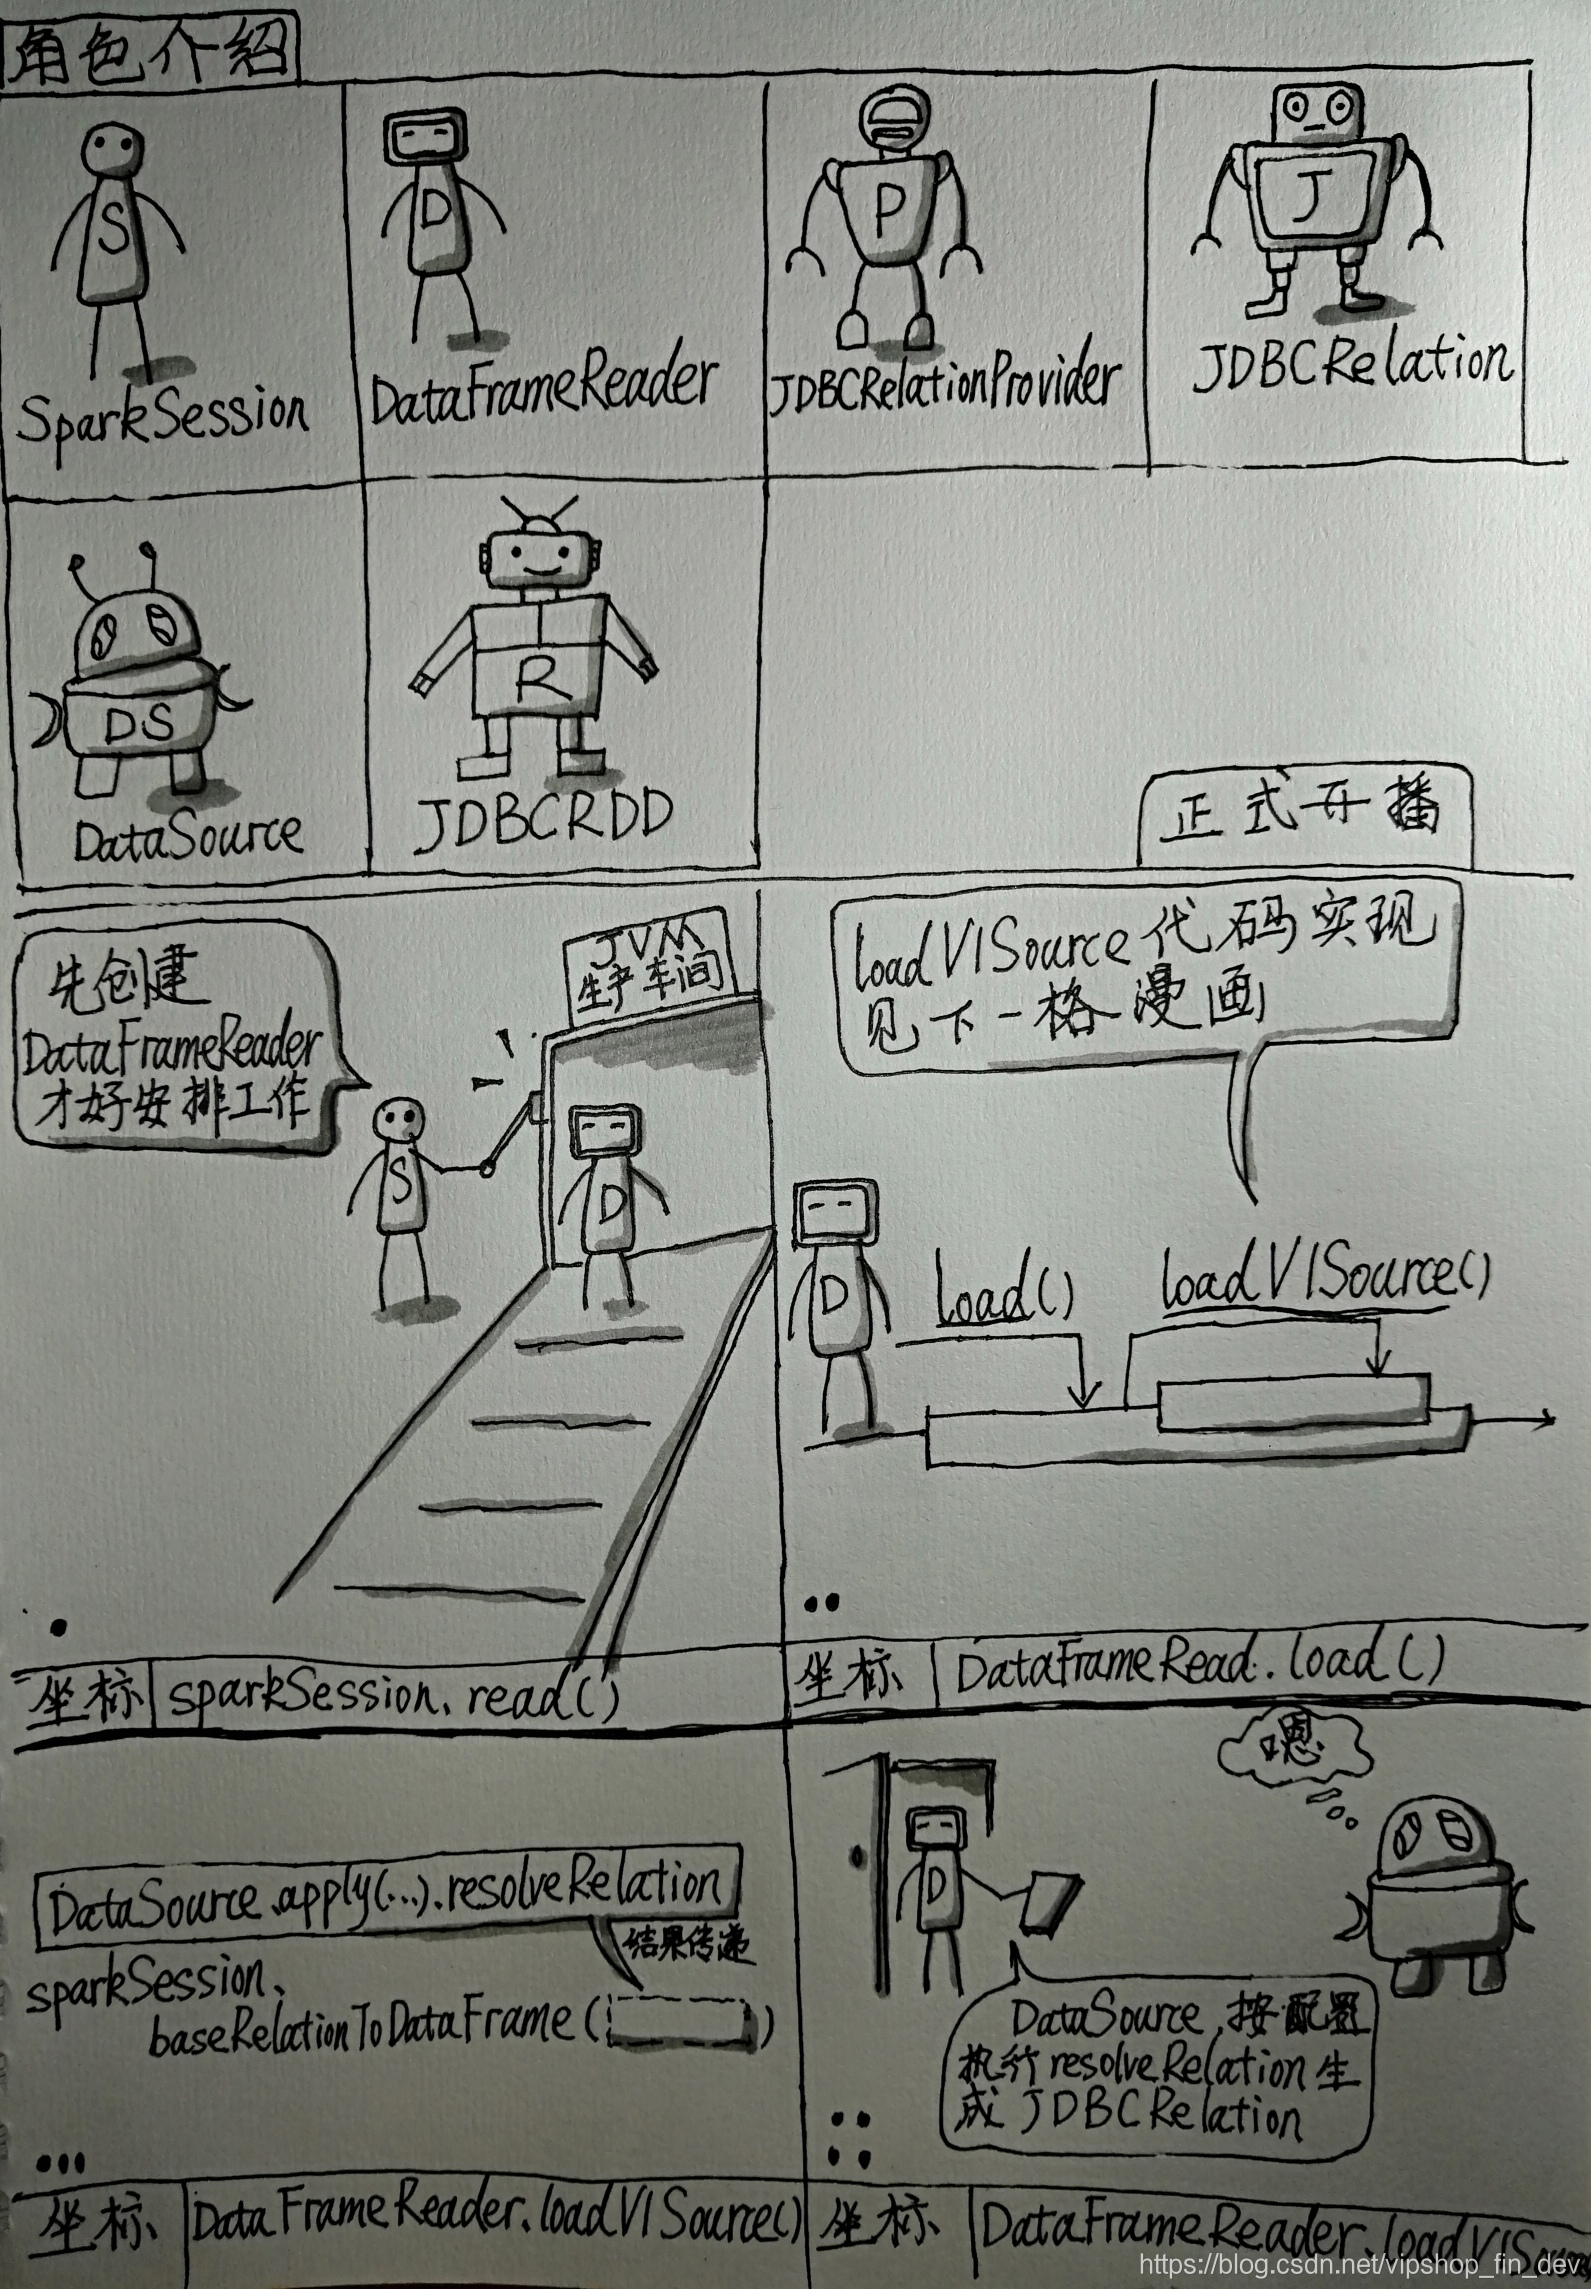 角色介绍
S
D
P
J
SparkSession
DataFrameReader
JDBCRelationProvider
JDBCRelation
DS
R
DataSource
JDBCRDD
正式开播
先创建
DataFrameReader
才好安排工作
JVM
生产车间
S
D
loadV1Source代码实现
见下一格漫画
D
load()
loadV1Source()
坐标 sparkSession.read()
坐标 DataFrameRead.load()
DataSource.apply(...).resolveRelation
结果传递
sparkSession.
baseRelationToDataFrame( )
嗯
D
DataSource,按配置
执行resolveRelation生
成JDBCRelation
坐标 DataFrameReader.loadV1Source()
坐标 DataFrameReader.loadV1Source
https://blog.csdn.net/vipshop_fin_dev